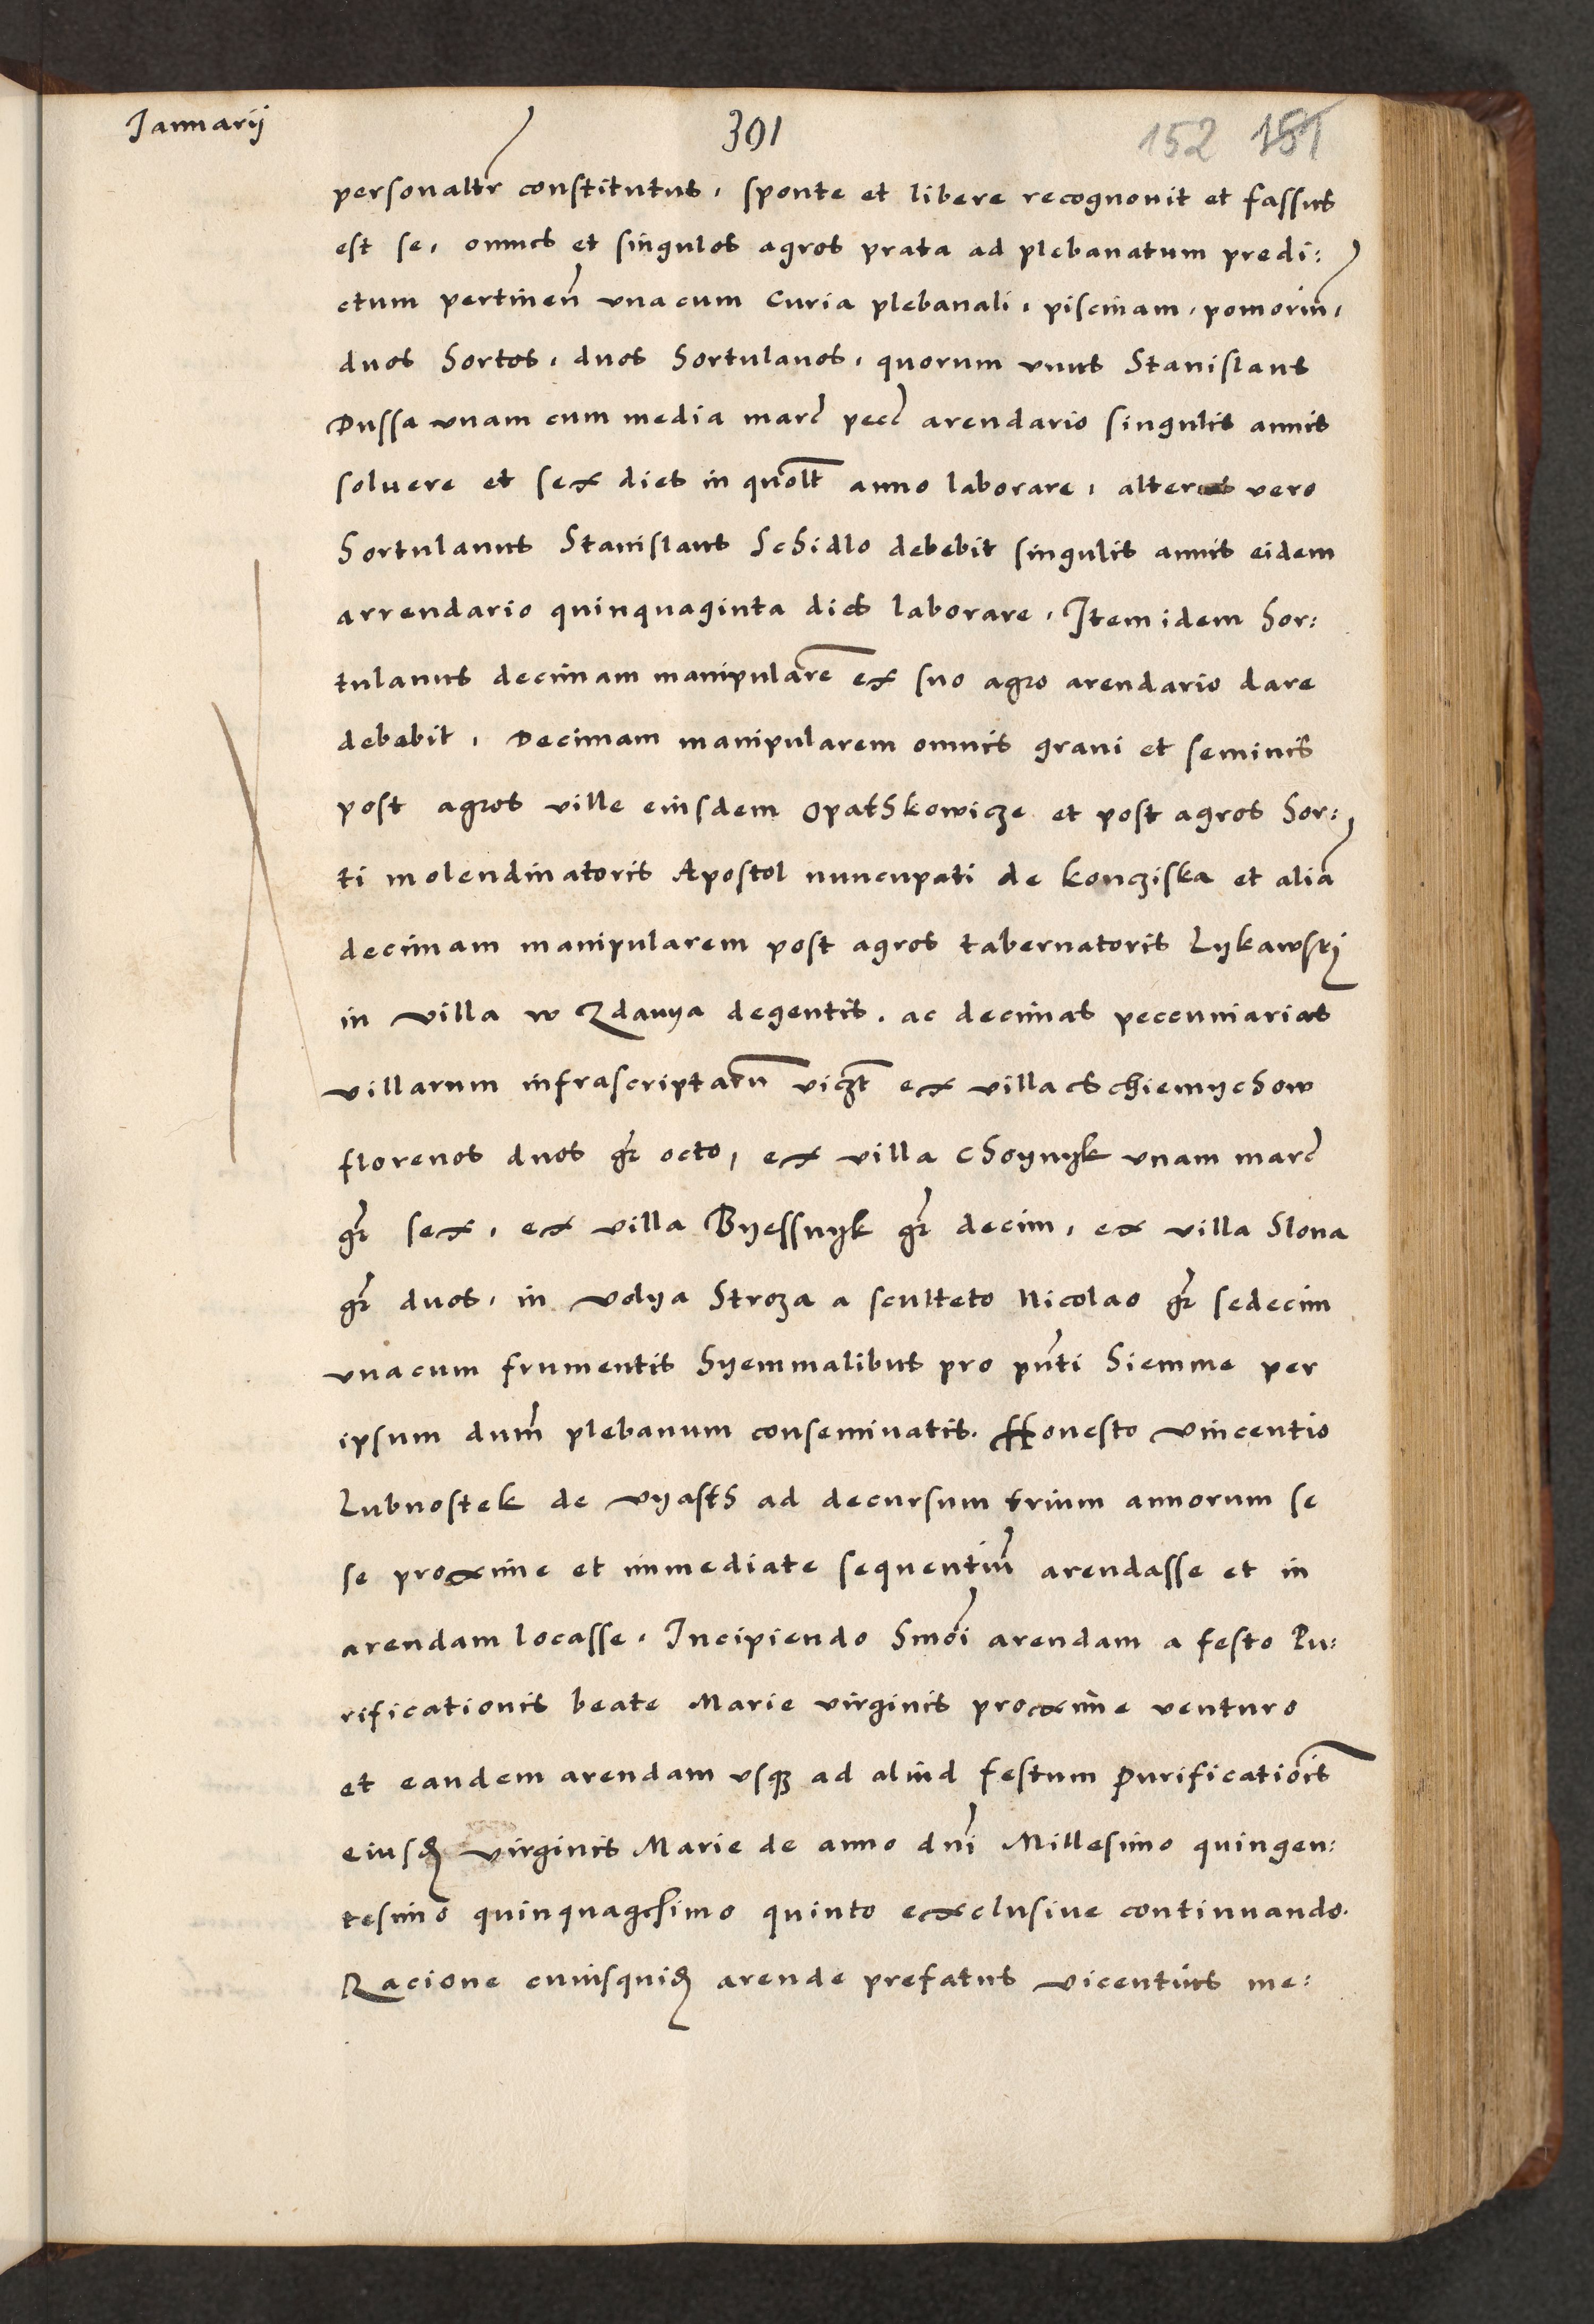 Januarij
301
152 151
personaltr constitutus, sponte et libere recognovit et fassus
est se, omnes et singulos agros prata ad plebanatum predi:
ctum pertinen unacum Curia plebanali, piscinam, pomoriu,
duos hortos, duos hortulanos, quorum unus Stanislaus
Dussa unam cum media marc pecc arendario singulis annis
soluere et sex dies in quolt anno laborare, alter vero
hortulanus Stanislaus Schidlo debebit singulis annis eidem
arrendario quinquaginta dies laborare, Item idem hor:
tulanus decimam manipulare ex suo agro arendario dare
debebit, Decimam manipularem omnis grani et seminis
post agros ville eiusdem Opathkowicze et post agros hor:
ti molendinatoris Apostol nuncupati de Koncziska et alia
decimam manipularem post agros tabernatoris Lykawskj
in villa w Zdanya degentis, ac decimas peccuniarias
villarum infrascriptaru viczt ex villa Czchiemychow
florenos duos gr octo, ex villa Choynyk unam marc
gr sex, ex villa Byessnyk gr decim, ex villa Slona
gr duos, in Volya Stroza a sculteto Nicolao gr sedecim
unacum frumentis hyemmalibus pro pnti hiemme per
ipsum dum plebanum conseminatis. Honesto Vincentio
Lubnostek de Vyasth ad decursum trium annorum se
se proxime et immediate sequentiu arendasse et in
arendam locasse, Incipiendo hmoi arendam a festo Pu:
rificationis beate Marie virginis proxime venturo
et eandem arendam usq ad aliud festum Purificatiois
eiusd virginis Marie de anno dni Millesimo quingen:
tesimo quinquagesimo quinto exclusiue continuando.
Racione cuiusquid arende prefatus Vicentius me: